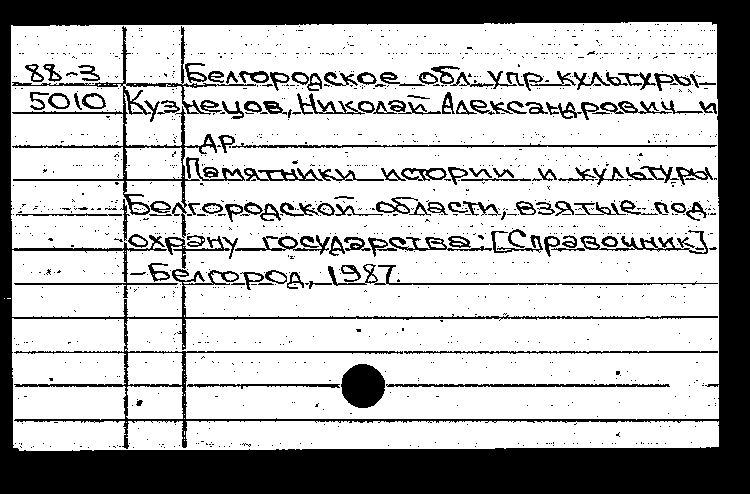 88-3 Белгородское обл. упр. культуры
5010 Кузнецов, Николай Александрович и
др.
Памятники истории и культуры
Белгородской области, взятые под
охрану государства: [Справочник]
-Белгород, 1987.